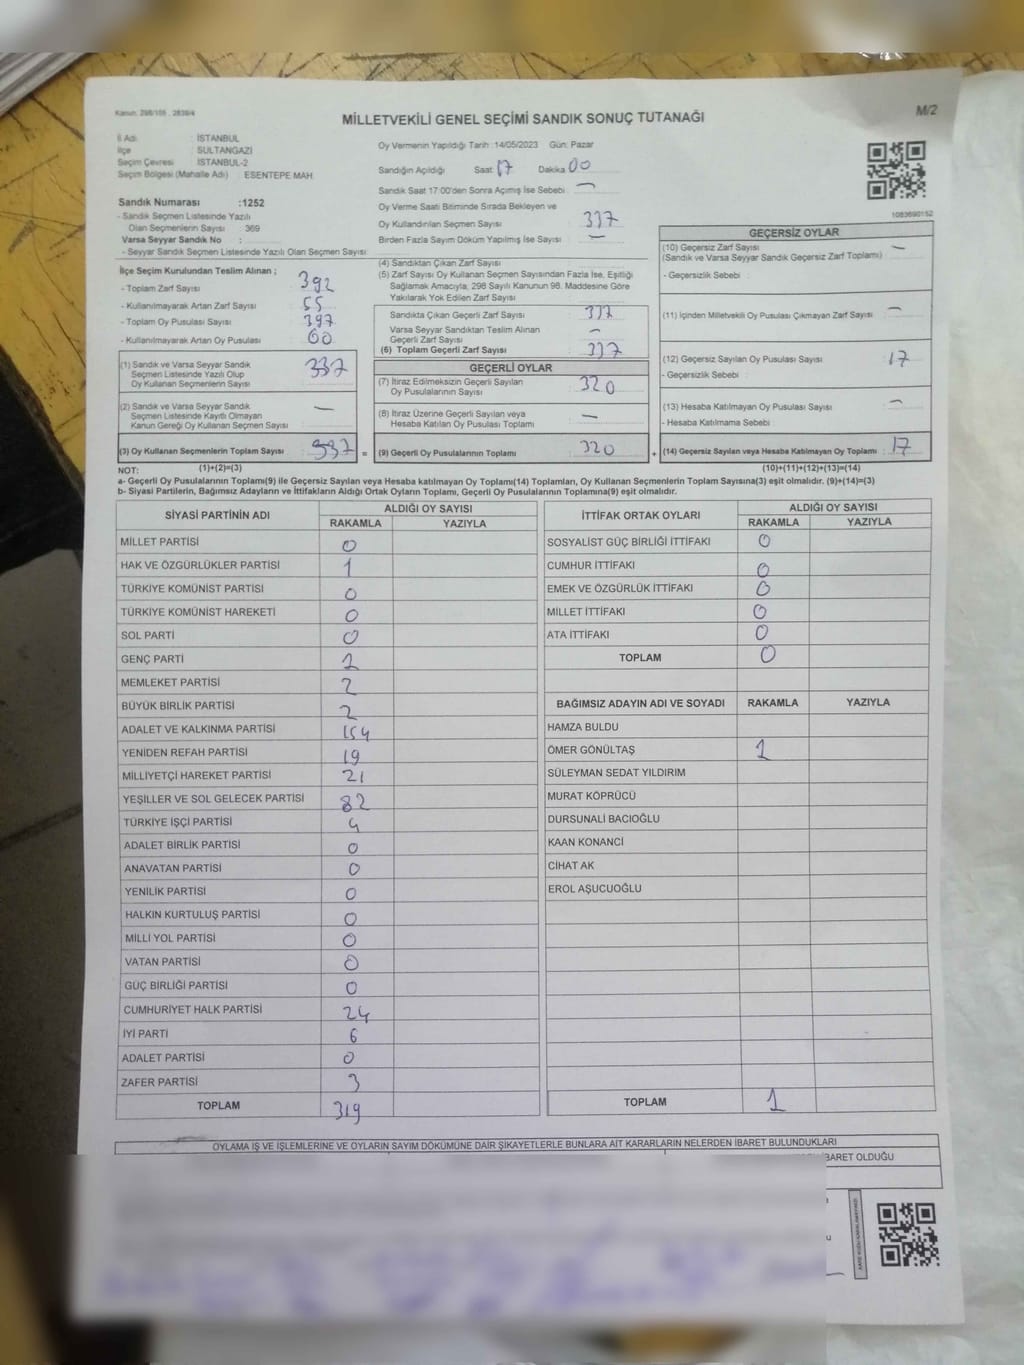 Kanun: 298/105 , 2839/4
M/2
MİLLETVEKİLİ GENEL SEÇİMİ SANDIK SONUÇ TUTANAĞI
İl Adı : İSTANBUL
İlçe : SULTANGAZİ
Seçim Çevresi : İSTANBUL-2
Seçim Bölgesi (Mahalle Adı) : ESENTEPE MAH.
Sandık Numarası :1252
- Sandık Seçmen Listesinde Yazılı
Olan Seçmenlerin Sayısı : 369
Varsa Seyyar Sandık No :
- Seyyar Sandık Seçmen Listesinde Yazılı Olan Seçmen Sayısı:
Oy Vermenin Yapıldığı Tarih :14/05/2023 Gün: Pazar
Sandığın Açıldığı Saat: 17 Dakika: 00
Sandık Saat 17:00'den Sonra Açımış İse Sebebi : —
Oy Verme Saati Bitiminde Sırada Bekleyen ve
Oy Kullandırılan Seçmen Sayısı : 337
Birden Fazla Sayım Döküm Yapılmış İse Sayısı : —
1083690152
İlçe Seçim Kurulundan Teslim Alınan ;
- Toplam Zarf Sayısı : 392
- Kullanılmayarak Artan Zarf Sayısı : 55
- Toplam Oy Pusulası Sayısı : 397
- Kullanılmayarak Artan Oy Pusulası : 60
(1) Sandık ve Varsa Seyyar Sandık
Seçmen Listesinde Yazılı Olup
Oy Kullanan Seçmenlerin Sayısı : 337
(2) Sandık ve Varsa Seyyar Sandık
Seçmen Listesinde Kayıtlı Olmayan
Kanun Gereği Oy Kullanan Seçmen Sayısı : —
(3) Oy Kullanan Seçmenlerin Toplam Sayısı : 337 =
(4) Sandıktan Çıkan Zarf Sayısı :
(5) Zarf Sayısı Oy Kullanan Seçmen Sayısından Fazla İse, Eşitliği
Sağlamak Amacıyla, 298 Sayılı Kanunun 98. Maddesine Göre
Yakılarak Yok Edilen Zarf Sayısı :
Sandıkta Çıkan Geçerli Zarf Sayısı : 337
Varsa Seyyar Sandıktan Teslim Alınan
Geçerli Zarf Sayısı : —
(6) Toplam Geçerli Zarf Sayısı : 337
GEÇERLİ OYLAR
(7) İtiraz Edilmeksizin Geçerli Sayılan
Oy Pusulalarının Sayısı : 320
(8) İtiraz Üzerine Geçerli Sayılan veya
Hesaba Katılan Oy Pusulası Toplamı : —
(9) Geçerli Oy Pusulalarının Toplamı : 320 +
GEÇERSİZ OYLAR
(10) Geçersiz Zarf Sayısı : —
(Sandık ve Varsa Seyyar Sandık Geçersiz Zarf Toplamı)
- Geçersizlik Sebebi :
(11) İçinden Milletvekili Oy Pusulası Çıkmayan Zarf Sayısı : —
(12) Geçersiz Sayılan Oy Pusulası Sayısı : 17
- Geçersizlik Sebebi :
(13) Hesaba Katılmayan Oy Pusulası Sayısı : —
- Hesaba Katılmama Sebebi :
(14) Geçersiz Sayılan veya Hesaba Katılmayan Oy Toplamı : 17
NOT: (1)+(2)=(3) (10)+(11)+(12)+(13)=(14)
a- Geçerli Oy Pusulalarının Toplamı(9) ile Geçersiz Sayılan veya Hesaba katılmayan Oy Toplamı(14) Toplamları, Oy Kullanan Seçmenlerin Toplam Sayısına(3) eşit olmalıdır. (9)+(14)=(3)
b- Siyasi Partilerin, Bağımsız Adayların ve İttifakların Aldığı Ortak Oyların Toplamı, Geçerli Oy Pusulalarının Toplamına(9) eşit olmalıdır.
SİYASİ PARTİNİN ADI ALDIĞI OY SAYISI
RAKAMLA YAZIYLA
MİLLET PARTİSİ 0
HAK VE ÖZGÜRLÜKLER PARTİSİ 1
TÜRKİYE KOMÜNİST PARTİSİ 0
TÜRKİYE KOMÜNİST HAREKETİ 0
SOL PARTİ 0
GENÇ PARTİ 1
MEMLEKET PARTİSİ 2
BÜYÜK BİRLİK PARTİSİ 2
ADALET VE KALKINMA PARTİSİ 154
YENİDEN REFAH PARTİSİ 19
MİLLİYETÇİ HAREKET PARTİSİ 21
YEŞİLLER VE SOL GELECEK PARTİSİ 82
TÜRKİYE İŞÇİ PARTİSİ 4
ADALET BİRLİK PARTİSİ 0
ANAVATAN PARTİSİ 0
YENİLİK PARTİSİ 0
HALKIN KURTULUŞ PARTİSİ 0
MİLLİ YOL PARTİSİ 0
VATAN PARTİSİ 0
GÜÇ BİRLİĞİ PARTİSİ 0
CUMHURİYET HALK PARTİSİ 24
İYİ PARTİ 6
ADALET PARTİSİ 0
ZAFER PARTİSİ 3
TOPLAM 319
İTTİFAK ORTAK OYLARI ALDIĞI OY SAYISI
RAKAMLA YAZIYLA
SOSYALİST GÜÇ BİRLİĞİ İTTİFAKI 0
CUMHUR İTTİFAKI 0
EMEK VE ÖZGÜRLÜK İTTİFAKI 0
MİLLET İTTİFAKI 0
ATA İTTİFAKI 0
TOPLAM 0
BAĞIMSIZ ADAYIN ADI VE SOYADI RAKAMLA YAZIYLA
HAMZA BULDU
ÖMER GÖNÜLTAŞ 1
SÜLEYMAN SEDAT YILDIRIM
MURAT KÖPRÜCÜ
DURSUNALİ BACIOĞLU
KAAN KONANCİ
CİHAT AK
EROL AŞUCUOĞLU
TOPLAM 1
OYLAMA İŞ VE İŞLEMLERİNE VE OYLARIN SAYIM DÖKÜMÜNE DAİR ŞİKAYETLERLE BUNLARA AİT KARARLARIN NELERDEN İBARET BULUNDUKLARI
İBARET OLDUĞU